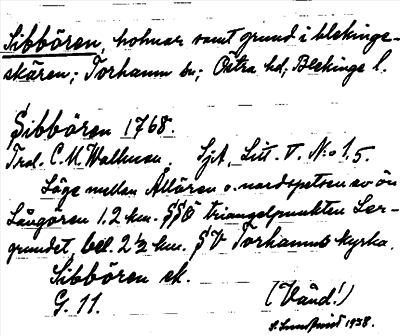 Sibbören, holmar samt grund i blekinge-
skären; Torhamn sn; Östra hd; Blekinge l.
Sibbören 1768.
Trol. C. M. Wallmen. SjA, Litt. V. N:o 15.
Läge mellan Ällören o. nordspetsen av ön
Långören 1.2 km. SSÖ triangelpunkten Ler-
grundet, bel. 2 ½ km. SV Torhamns kyrka.
Sibbören sk.
G. 11. (Vänd!)
1938.